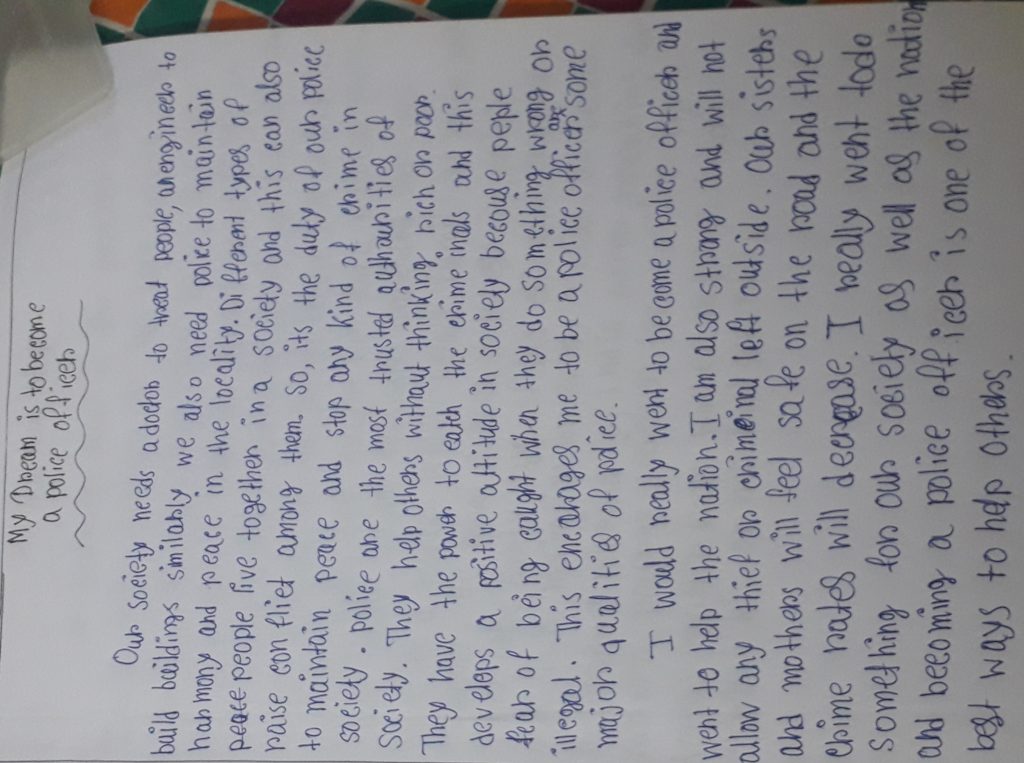 My Dream is to become
a police officer
Our society needs a doctor to treat people, an engineer to
build buildings similarly we also need police to maintain
harmony and peace in the locality. Different types of
peace people live together in a society and this can also
raise conflict among them. So, its the duty of our police
to maintain peace and stop any kind of crime in
society. police are the most trusted authourities of
Society. They help others without thinking rich or poor.
They have the power to catch the crime inals and this
develops a positive attitude in society because peple
fear of being caught when they do something wrong or
illegal. This encorages me to be a police officer are some
major qualities of police.
I would really went to be come a police officer and
went to help the nation. I am also strong and will not
allow any thief or crimeinal left outside. Our sisters
and mothers will feel safe on the road and the
crime rates will derease. I really went todo
something for our sosiety as well as the nation
and becoming a police officer is one of the
best ways to help others.